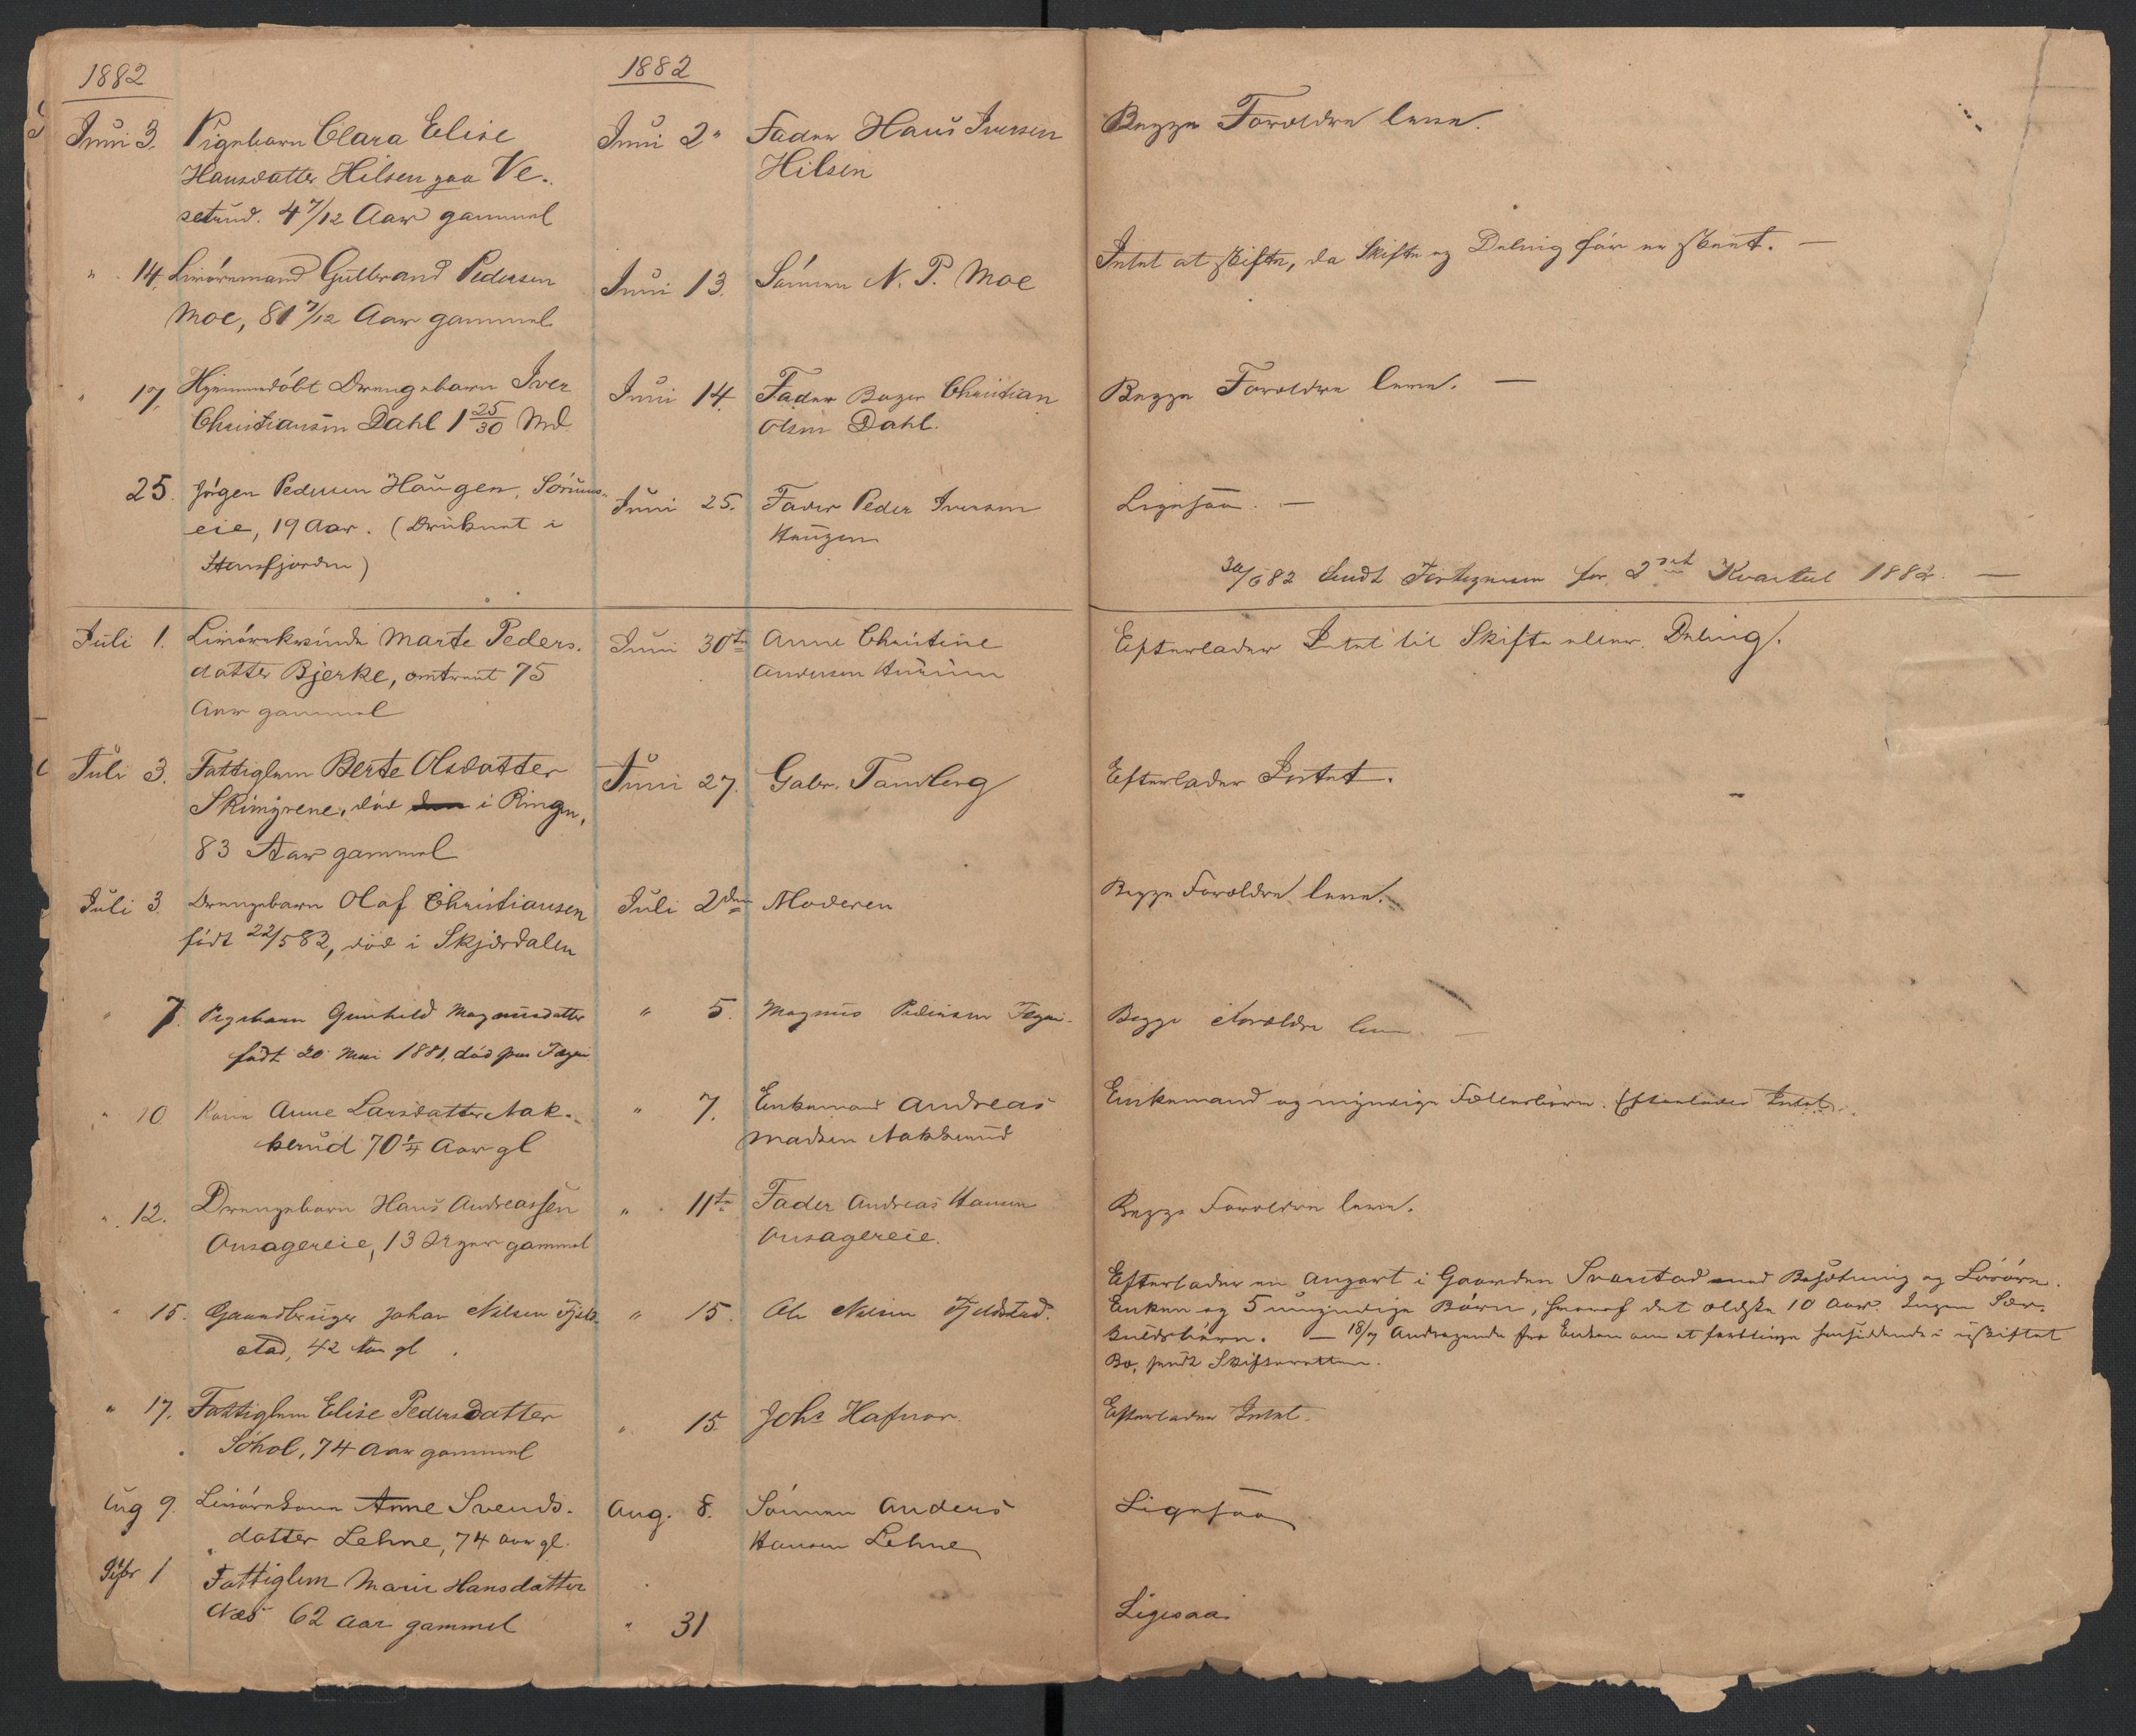 1882
1882
Juni 3. Pigebarn Clara Elise Juni 2 Fader Hans Iversen Begge Forældre leve.
Hansdatter Hilsen paa Ve- Hilsen
setrud. 4 7/12 Aar gammel
" 14. Livøremand Gulbrand Pedersen Juni 13. Sønnen N. P. Moe Intet at skifte, da Skifte og Deling før er skeet. —
Moe, 81 7/12 Aar gammel
" 17. Hjemmedøbt Drengebarn Iver Juni 14. Fader Bager Christian Begge Forældre leve. —
Christiansen Dahl 1 25/30 Md. Olsen Dahl.
25. Jørgen Pedersen Haugen, Sørums- Juni 25. Fader Peder Iversen Ligesaa. —
eie, 19 Aar. (Druknet i Haugen
Stensfjorden)
30/6 82 Sendt Fortegnelse for 2det Kvartal 1882. —
Juli 1. Livørekvinde Marte Peders- Juni 30te Anne Christine Efterlader Intet til Skifte eller Deling.
datter Bjerke, omtrent 75 Andersen
Aar gammel
Juli 3. Fattiglem Berte Olsdatter Juni 27. Gabr. Tandberg Efterlader Intet.
Skimyrene, død i Ringen,
83 Aar gammel
Juli 3. Drengebarn Olaf Christiansen Juli 2den Moderen Begge Forældre leve.
født 22/5 82, død i Skjærdalen
" 7. Pigebarn Gunhild Magnusdatter " 5. Magnus Pedersen Begge Forældre leve. —
født 20 Mai 1881, død paa
" 10 Kone Anne Larsdatter Nak- " 7. Enkemand Andreas Enkemand og myndige Fællesbørn. Efterlader Intet.
kerud 70 1/4 Aar gl Madsen Nakkerud
" 12. Drengebarn Hans Andreassen " 11te Fader Andreas Hansen Begge Forældre leve.
Onsagereie, 13 Uger gammel Onsagereie.
Efterlader en Anpart i Gaarden Svarstad med Besætning og Løsøre.
" 15. Gaardbruger Johan Nilsen Fjeld- " 15. Ole Nilsen Fjeldstad. Enken og 5 umyndige Børn, hvoraf det ældste 10 Aar. Ingen Sær-
stad, 42 Aar gl. kuldsbørn. — 18/7 Andragende fra Enken om at forblive hensiddende i uskiftet
Bo, sendt Skifteretten.
" 17. Fattiglem Elise Pedersdatter " 15. Johs Hafnor. Efterlader Intet.
Søhol, 74 Aar gammel
Aug 9. Livørekone Anne Svends- Aug. 8. Sønnen Anders Ligesaa
datter Lehne, 74 Aar gl. Hansen Lehne
1 Fattiglem Marie Hansdatter
Næs 62 Aar gammel " 31 Ligesaa